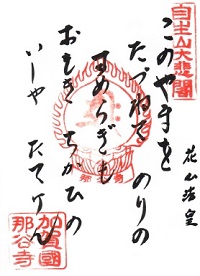 自生山大悲閣
花山法皇
このやまを
たづねて のりの
すめらぎも
おもき ちかひの
いしや たてけん
加賀國
那谷寺